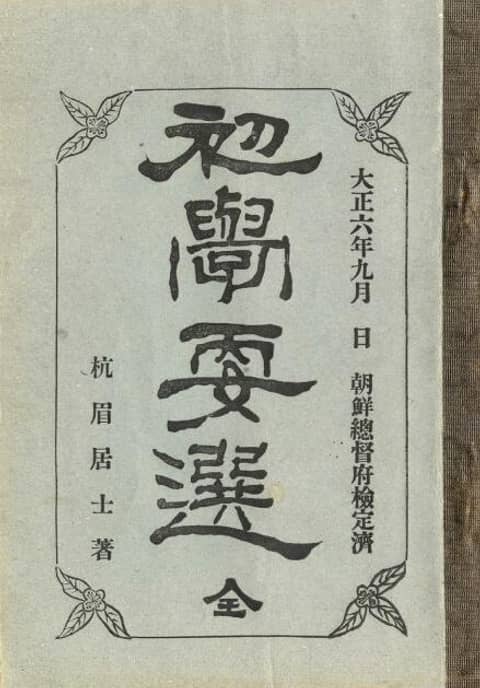 大正六年九月　日　朝鮮總督府檢定濟
初學要選 全
杭眉居士著